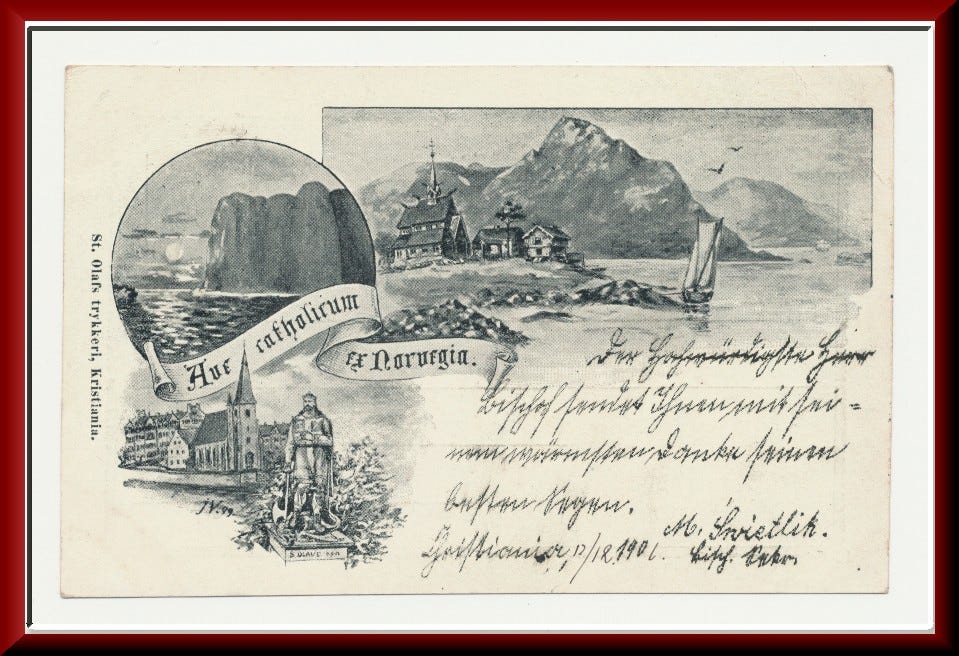 St. Olafs trykkeri, Kristiania.
Ave catholicum
ex Norvegia.
Der Hochwürdigste Herr
Bischof sendet Ihnen mit sei=
nem wärmsten Danke seinen
besten Segen.
M. Swietlik.
Christiania, 12/12.1901.
bisch. Sekr.
J.V.99
S. OLAVE